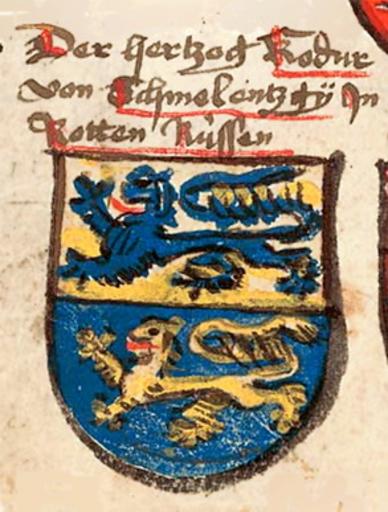 Der hertzog Fodur
von Schmolentzgÿ Jn
Rotten Rüssen